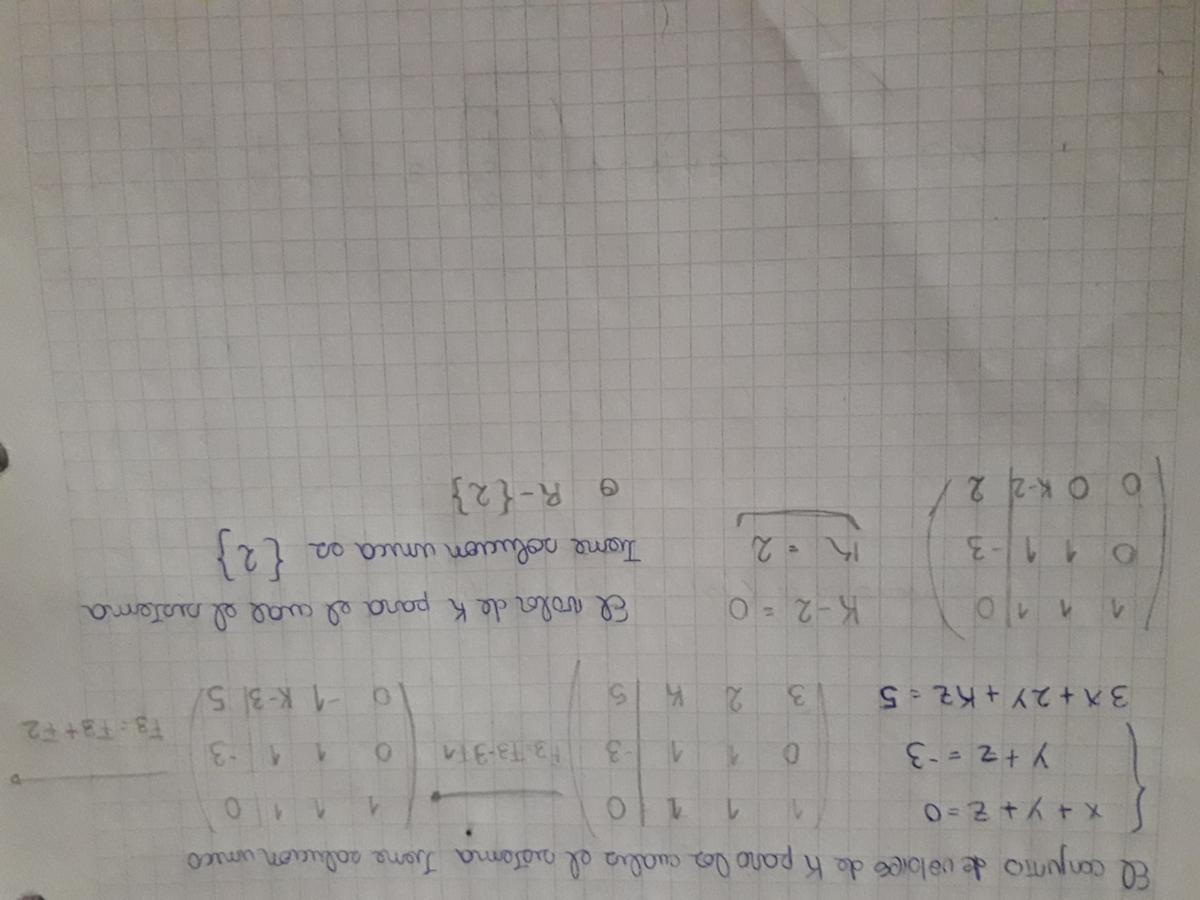 El conjunto de valores de K para los cuales el sistema tiene solucion unica
x + y + z = 0
y + z = -3
3x + 2y + Kz = 5
1 1 1 | 0
0 1 1 | -3
3 2 K | 5
F3=F3-3F1
1 1 1 | 0
0 1 1 | -3
0 -1 K-3 | 5
F3=F3+F2
1 1 1 | 0
0 1 1 | -3
0 0 K-2 | 2
K-2=0
K=2
El valor de K para el cual el sistema
Tiene solucion unica es {2}
R-{2}